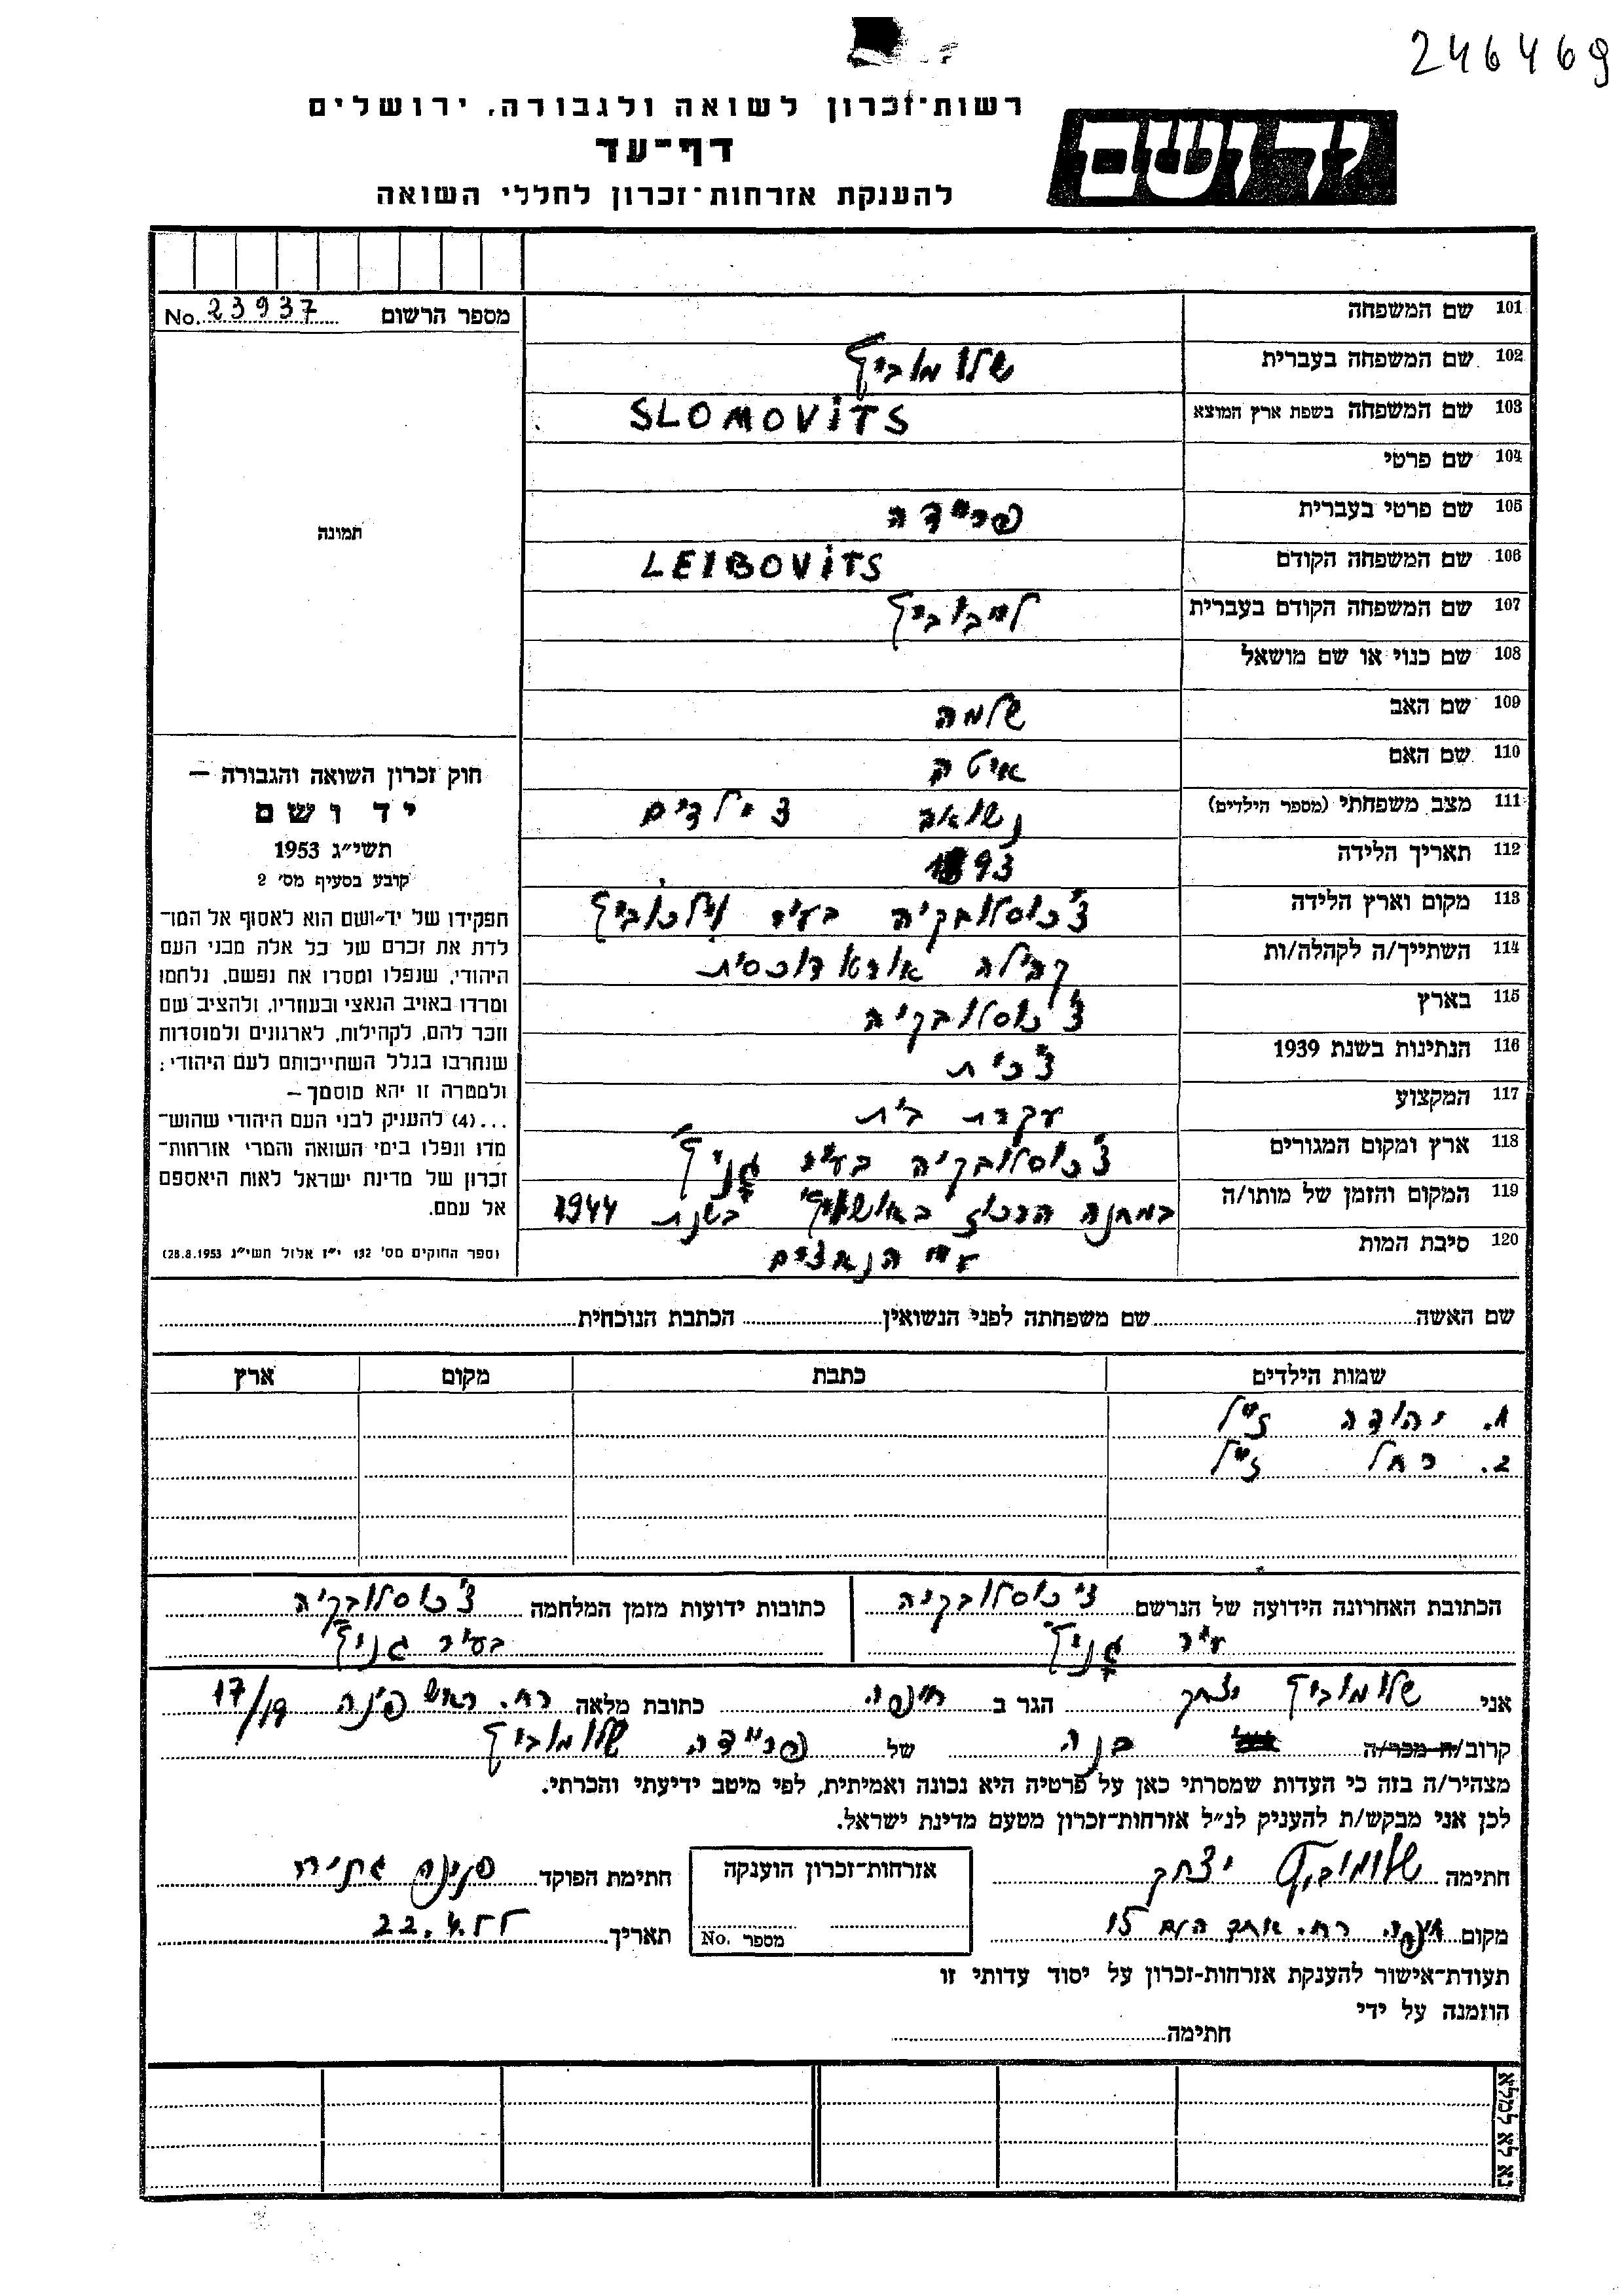 246469
יד ושם
רשות-זכרון לשואה ולגבורה, ירושלים
דף-עד
להענקת אזרחות-זכרון לחללי השואה
מספר הרשום No. 23937
תמונה
חוק זכרון השואה והגבורה —
יד ושם
תשי״ג 1953
קובע בסעיף מס׳ 2
תפקידו של יד-ושם הוא לאסוף אל המו-
לדת את זכרם של כל אלה מבני העם
היהודי, שנפלו ומסרו את נפשם, נלחמו
ומרדו באויב הנאצי ובעוזריו, ולהציב שם
וזכר להם, לקהילות, לארגונים ולמוסדות
שנחרבו בגלל השתייכותם לעם היהודי:
ולמטרה זו יהא מוסמך —
...(4) להעניק לבני העם היהודי שהוש-
מדו ונפלו בימי השואה והמרי אזרחות-
זכרון של מדינת ישראל לאות היאספם
אל עמם.
(ספר החוקים מס׳ 132 י״ז אלול תשי״ג 28.8.1953)
101 שם המשפחה
102 שם המשפחה בעברית שלומוביץ
103 שם המשפחה בשפת ארץ המוצא SLOMOVITS
104 שם פרטי
105 שם פרטי בעברית פריידה
106 שם המשפחה הקודם LEIBOVITS
107 שם המשפחה הקודם בעברית לייבוביץ
108 שם כנוי או שם מושאל
109 שם האב שלמה
110 שם האם איטה
111 מצב משפחתי (מספר הילדים) נשואה 3 ילדים
112 תאריך הלידה 1893
113 מקום וארץ הלידה צ׳כוסלובקיה בעיר
114 השתייך/ה לקהלה/ות קהילה אורטודוכסית
115 בארץ צ׳כוסלובקיה
116 הנתינות בשנת 1939 צ׳כית
117 המקצוע עקרת בית
118 ארץ ומקום המגורים צ׳כוסלובקיה בעיר גניץ׳
119 המקום והזמן של מותו/ה במחנה הרכוז באושוויץ בשנת 1944
120 סיבת המות ע״י הנאצים
שם האשה שם משפחתה לפני הנשואין הכתבת הנוכחית
שמות הילדים כתבת מקום ארץ
1. יהודה ז״ל
2. רחל ז״ל
הכתובת האחרונה הידועה של הנרשם צ׳כוסלובקיה
עיר גניץ׳
כתובות ידועות מזמן המלחמה צ׳כוסלובקיה
בעיר גניץ׳
אני שלומוביץ יצחק הגר ב חיפה כתובת מלאה רח. ראש פינה 17/19
קרוב/ה מכר/ה בנה של פריידה שלומוביץ
מצהיר/ה בזה כי העדות שמסרתי כאן על פרטיה היא נכונה ואמיתית, לפי מיטב ידיעתי והכרתי.
לכן אני מבקש/ת להעניק לנ״ל אזרחות-זכרון מטעם מדינת ישראל.
חתימה שלומוביץ יצחק
אזרחות-זכרון הוענקה
מספר No.
חתימת הפוקד
מקום חיפה רח. אחד העם 15
תאריך 22.4.55
תעודת-אישור להענקת אזרחות-זכרון על יסוד עדותי זו
הוזמנה על ידי
חתימה
נא לא למלא